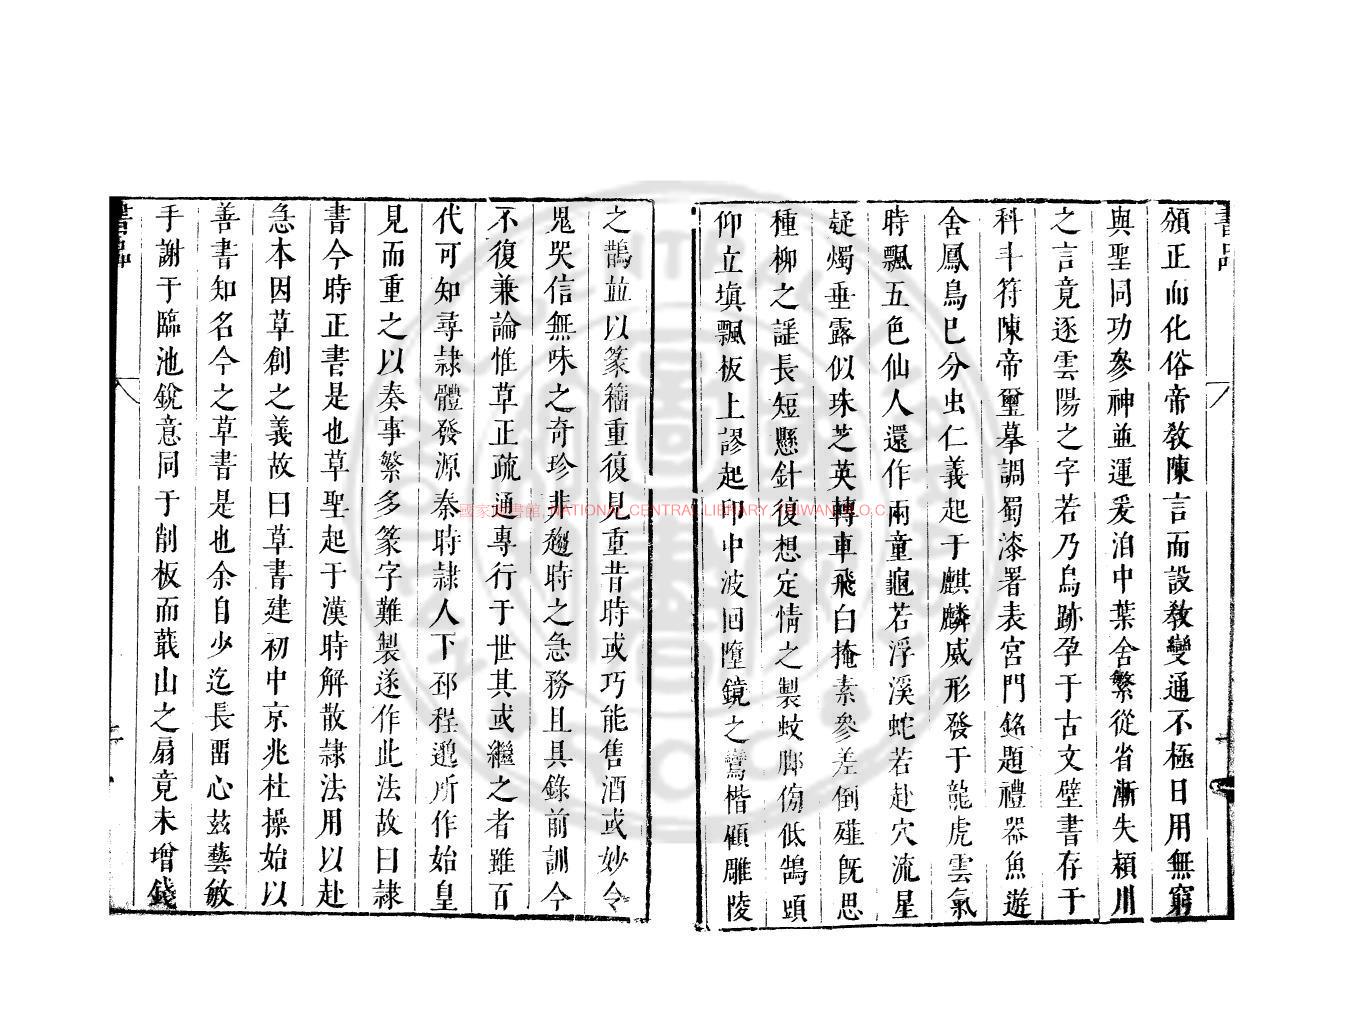 書品
頒正而化俗帝敎陳言而設敎變通不極日用無窮
與聖同功參神並運爰洎中葉舍繁從省漸失潁川
之言竟逐雲陽之字若乃鳥跡孕于古文壁書存于
科斗符陳帝璽摹調蜀漆署表宮門銘題禮器魚遊
舍鳳鳥已分虫仁義起于麒麟威形發于龍虎雲氣
時飄五色仙人還作兩童龜若浮溪蛇若赴穴流星
疑燭垂露似珠芝英轉車飛白掩素參差倒薤旣思
種柳之謡長短懸針復想定情之製蚊脚傍低鵠頭
仰立塡飄板上謬起印中波回墮鏡之鸞楷顧雕陵
之鵲並以篆籀重復見重昔時或巧能售酒或妙令
鬼哭信無味之奇珍非趨時之急務且具錄前訓今
不復兼論惟草正疏通專行于世其或繼之者雖百
代可知尋隷體發源秦時隷人下邳程邈所作始皇
見而重之以奏事繁多篆字難製遂作此法故曰隷
書今時正書是也草聖起于漢時解散隷法用以赴
急本因草創之義故曰草書建初中京兆杜操始以
善書知名今之草書是也余自少迄長畱心兹藝敏
手謝于臨池銳意同于削板而蕺山之扇竟未增錢
書品
國家圖書館, NATIONAL CENTRAL LIBRARY, TAIWAN, R.O.C.